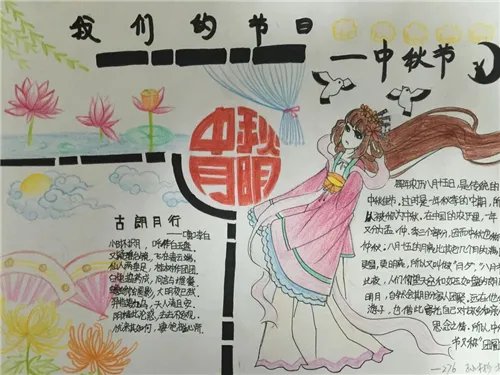 我们的节日
—中秋节
中秋
月明
古朗月行
—[唐]李白
小时不识月,呼作白玉盘
又疑瑶台镜,飞在青云端
仙人垂两足,桂树何团团
白兔捣药成,问言与谁餐
蟾蜍蚀圆影,大明夜已残
羿昔落九乌,天人清且安
阴精此沦惑,去去不足观
忧来其如何,凄怆摧心肝
每年农历八月十五日,是传统的
中秋佳节,这时是一年秋季的中期,所
以被称为中秋,在中国的农历里,一年
又分孟、仲、季三个部分,因而中秋也称
仲秋,八月十五的月亮比其他几个月的满月
更圆,更明亮,所以又叫做“月夕”
此夜,人们仰望天空如玉如盘的朗朗
明月,自然会期盼家人团聚,远在他
游子,也借此寄托自己对故乡和亲
思念之情,所以,中
节又称“团圆
—276